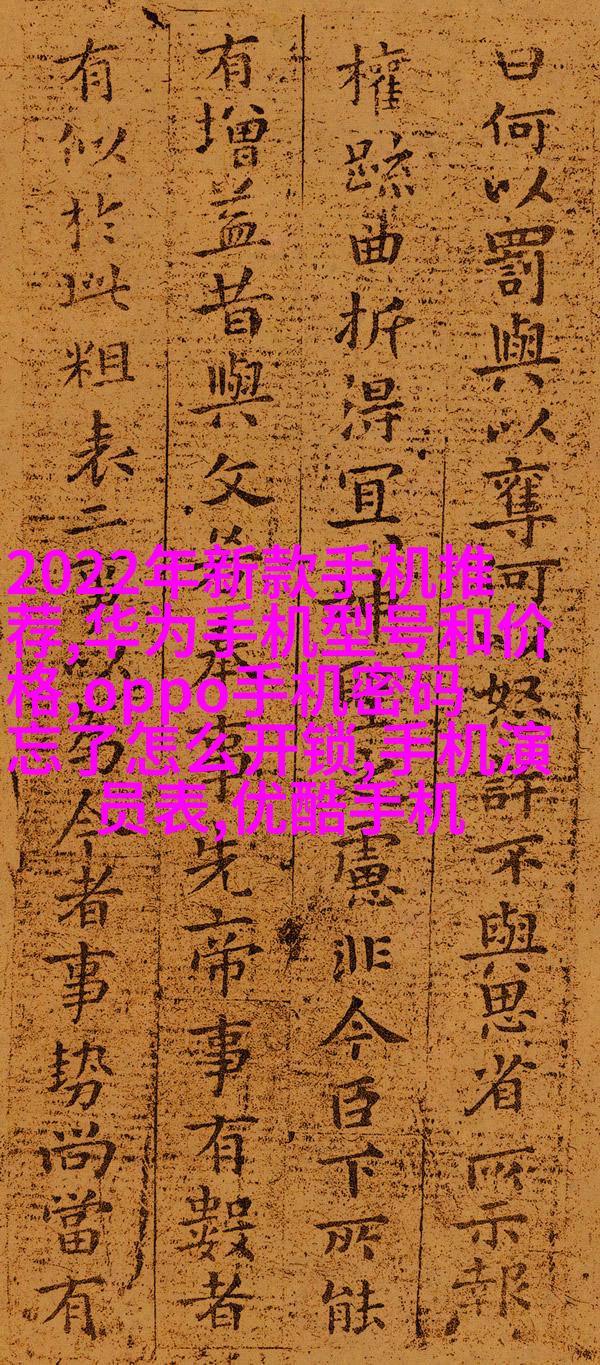 曰何以罰與以奪可以怒許不與思省所示報
權疏曲折得宜神聖之慮非今臣下所能
有增益昔與文若奉事先帝事有數者
有似於此粗表二事以為今者事勢尚當有
2022年新款手机推
荐,华为手机型号和价
格,oppo手机密码
忘了怎么开锁,手机演
员表,优酷手机